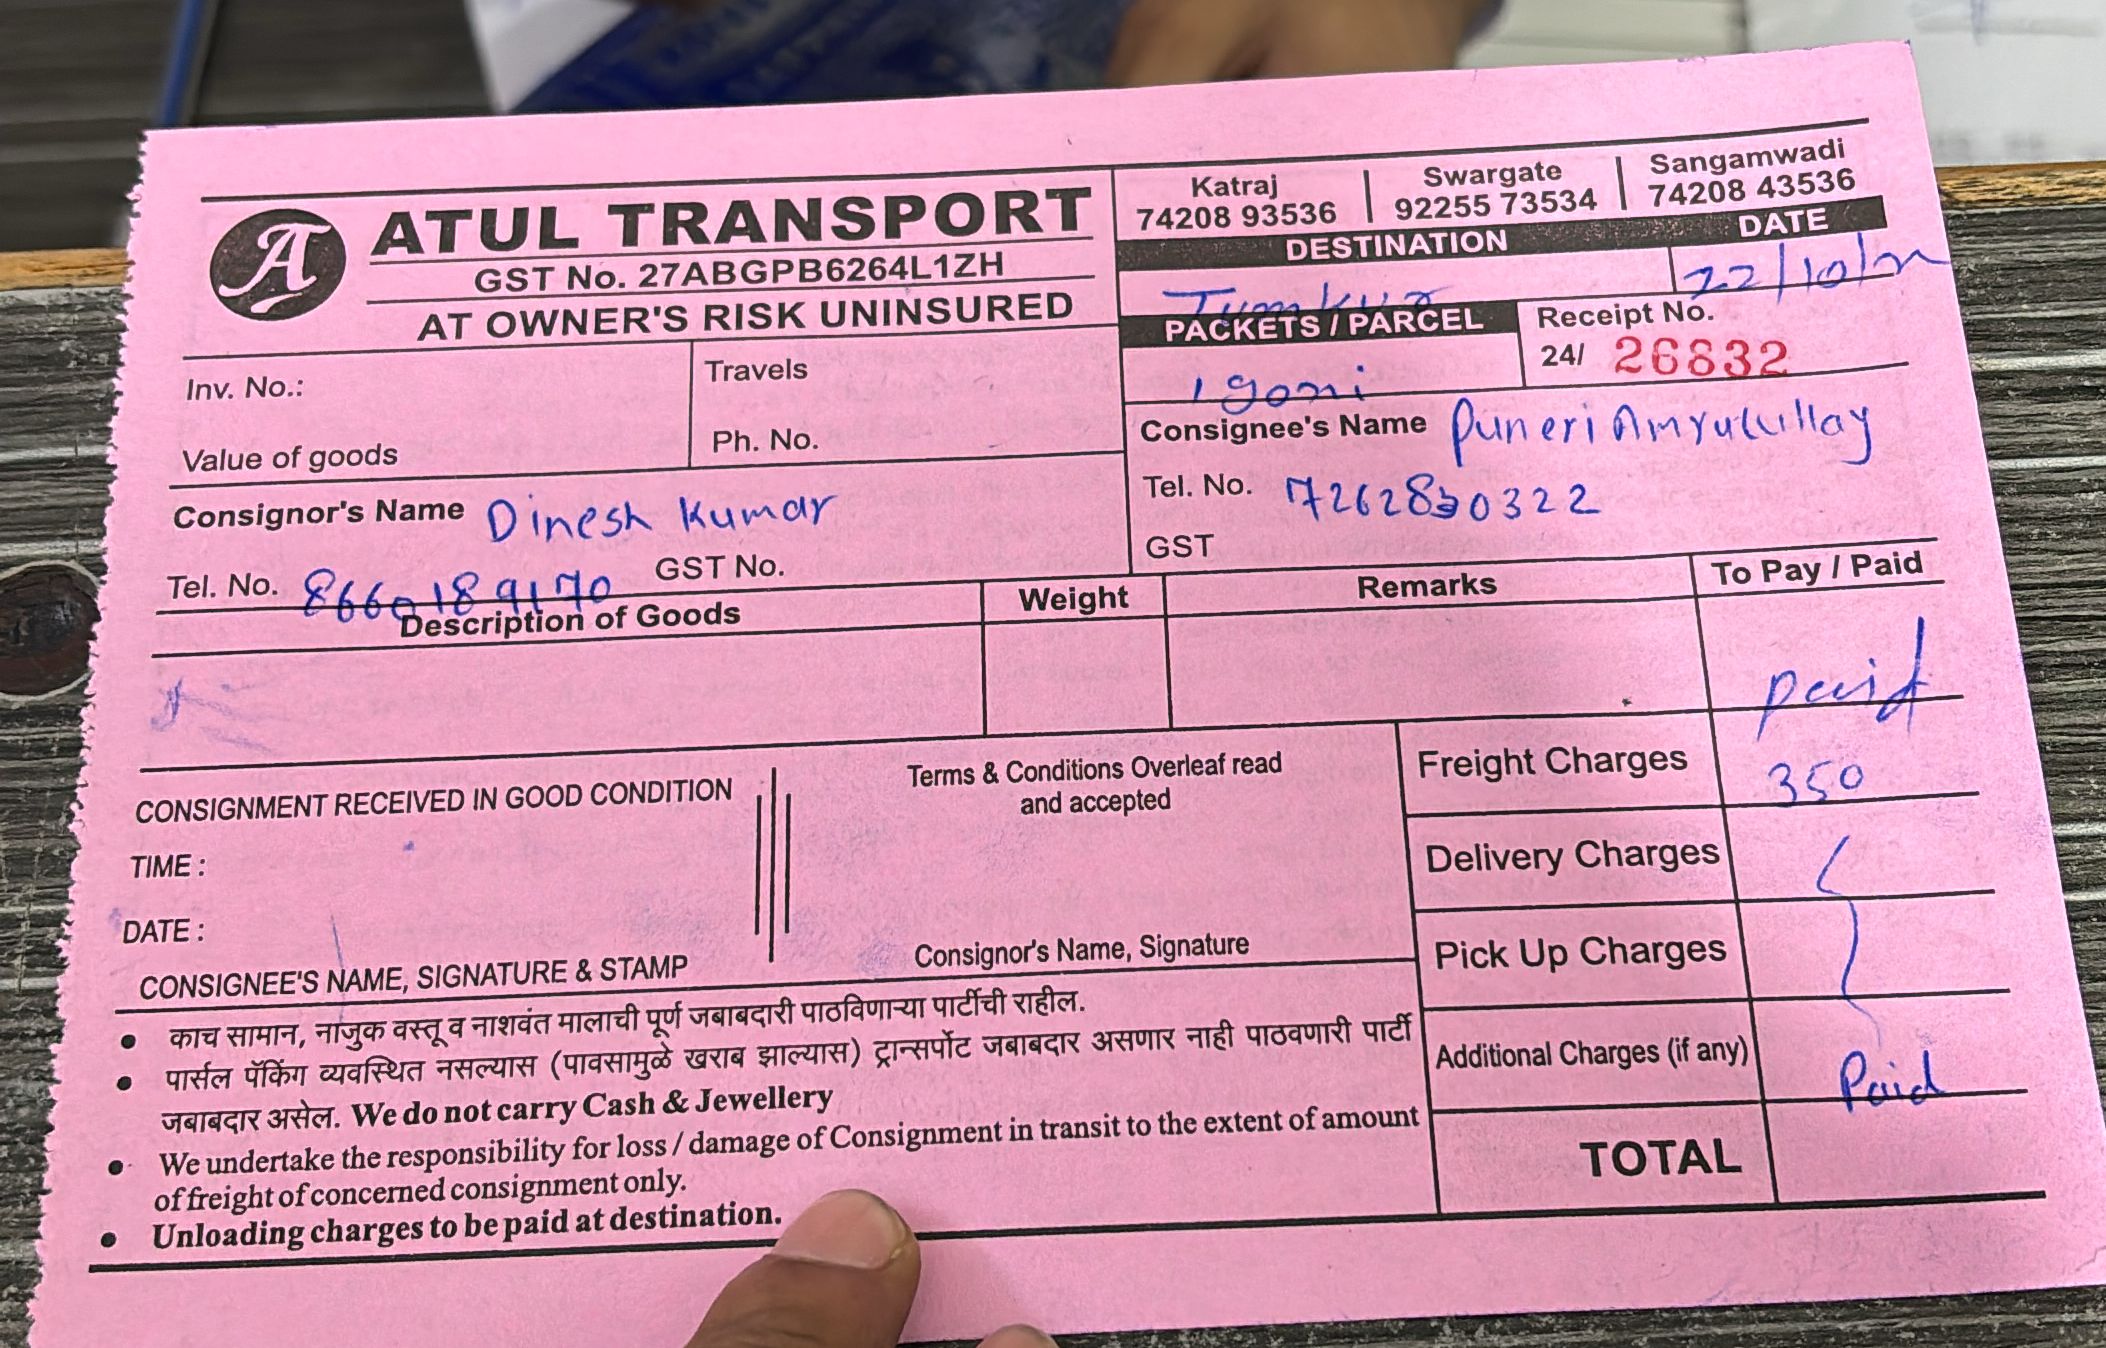 A
ATUL TRANSPORT
GST No. 27ABGPB6264L1ZH
AT OWNER'S RISK UNINSURED
Katraj
74208 93536
Swargate
92255 73534
Sangamwadi
74208 43536
DESTINATION
DATE
Tumkur
22/10/
PACKETS / PARCEL
1 goni
Receipt No.
24/ 26832
Inv. No.:
Travels
Value of goods
Ph. No.
Consignee's Name Puneri
Tel. No. 7262830322
GST
Consignor's Name Dinesh Kumar
Tel. No. 8660189170 GST No.
Description of Goods
Weight
Remarks
To Pay / Paid
paid
Freight Charges 350
Delivery Charges
Pick Up Charges
Additional Charges (if any) Paid
TOTAL
CONSIGNMENT RECEIVED IN GOOD CONDITION
TIME :
DATE :
CONSIGNEE'S NAME, SIGNATURE & STAMP
Terms & Conditions Overleaf read
and accepted
Consignor's Name, Signature
• काच सामान, नाजुक वस्तू व नाशवंत मालाची पूर्ण जबाबदारी पाठविणाऱ्या पार्टीची राहील.
• पार्सल पॅकिंग व्यवस्थित नसल्यास (पावसामुळे खराब झाल्यास) ट्रान्सपोर्ट जबाबदार असणार नाही पाठवणारी पार्टी
जबाबदार असेल. We do not carry Cash & Jewellery
• We undertake the responsibility for loss / damage of Consignment in transit to the extent of amount
of freight of concerned consignment only.
• Unloading charges to be paid at destination.